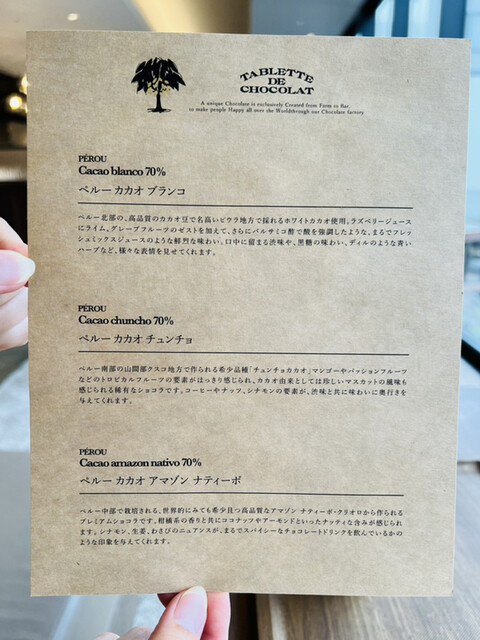 TABLETTE
DE
CHOCOLAT
A unique Chocolate is exclusively Created from Farm to Bar,
to make people Happy all over the Worldthrough our Chocolate factory
PÉROU
Cacao blanco 70%
ペルー カカオ ブランコ
ペルー北部の、高品質のカカオ豆で名高いピウラ地方で採れるホワイトカカオ使用。ラズベリージュース
にライム。グレープフルーツのゼストを加えて、さらにバルサミコ酢で酸を強調したような、まるでフレッ
シュミックスジュースのような鮮烈な味わい。口中に留まる渋味や、黒糖の味わい、ディルのような青い
ハーブなど、様々な表情を見せてくれます。
PÉROU
Cacao chuncho 70%
ペルー カカオ チュンチョ
ペルー南部の山間部クスコ地方で作られる希少品種「チュンチョカカオ」マンゴーやパッションフルーツ
などのトロピカルフルーツの要素がはっきり感じられ、カカオ由来としては珍しいマスカットの風味も
感じられる稀有なショコラです。コーヒーやナッツ、シナモンの要素が、渋味と共に味わいに奥行きを
与えてくれます。
PÉROU
Cacao amazon nativo 70%
ペルー カカオ アマゾン ナティーボ
ペルー中部で栽培される、世界的にみても希少且つ高品質なアマゾン ナティーボ・クリオロから作られる
プレミアムショコラです。柑橘系の香りと共にココナッツやアーモンドといったナッティな含みが感じられ
ます。シナモン、生姜、わさびのニュアンスが、まるでスパイシーなチョコレートドリンクを飲んでいるかの
ような印象を与えてくれます。